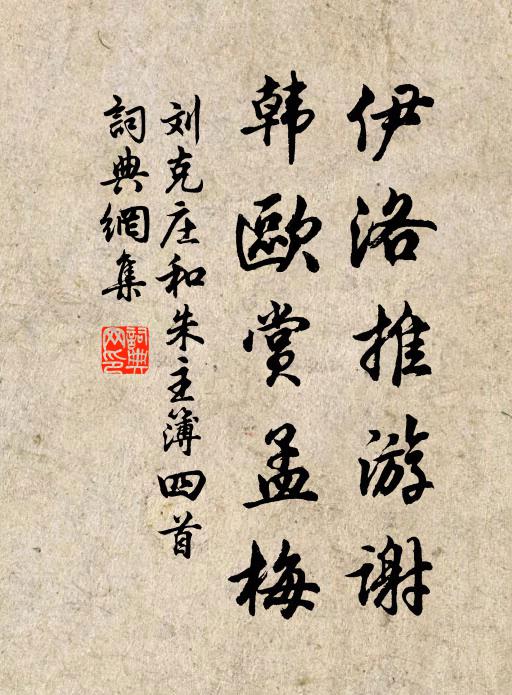 伊洛推游谢
韩欧赏孟梅
刘克庄和朱主簿四首
词典网集
词典网印